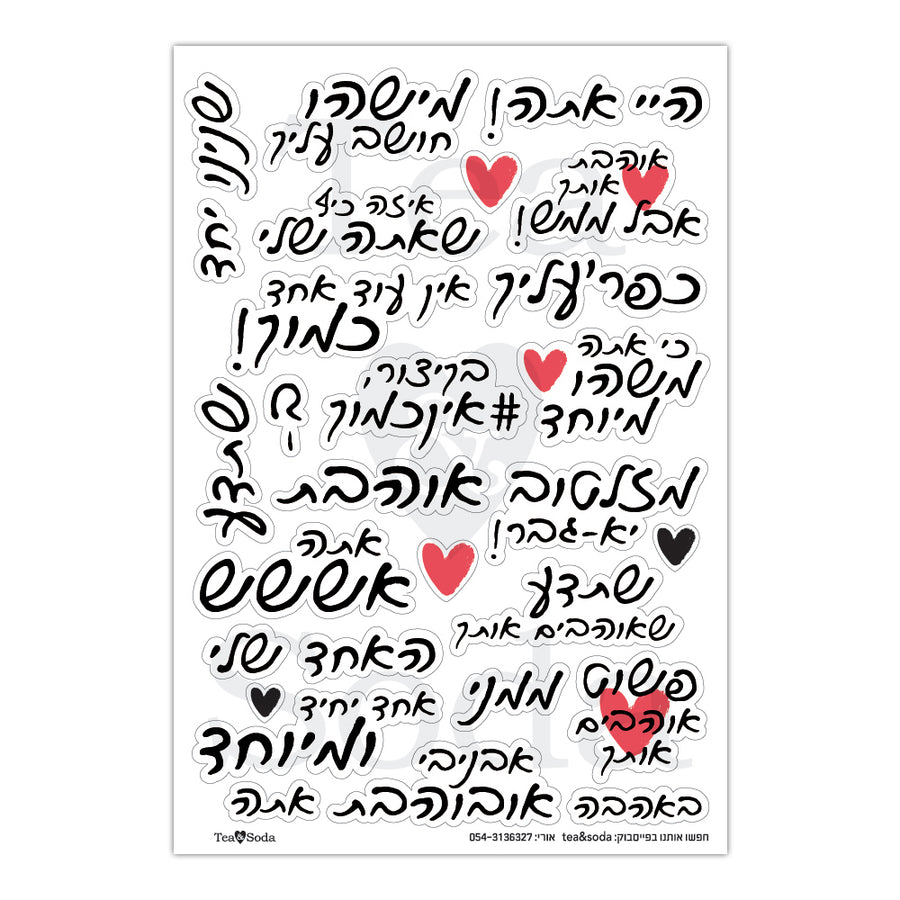 היי אתה!
מישהו
חושב עליך
שנינו יחד
אוהבת
אותך
אבל ממש!
איזה כיף
שאתה שלי
כפרי'עליך
אין עוד אחד
כמוך!
כי אתה
משהו
מיוחד
בקיצור,
#אינכמוך
?
שתדע
מזלטוב
יא-גבר!
אוהבת
אתה
אששש
שתדע
שאוהבים אותך
האחד
שלי
פשוט
אוהבים
אותך
ממני
אחד יחיד
ומיוחד
אבניבי
אובוהבת
באהבה
אתה
חפשו אותנו בפייסבוק: tea&soda אורי: 054-3136327
Tea&Soda
Tea
&
Soda